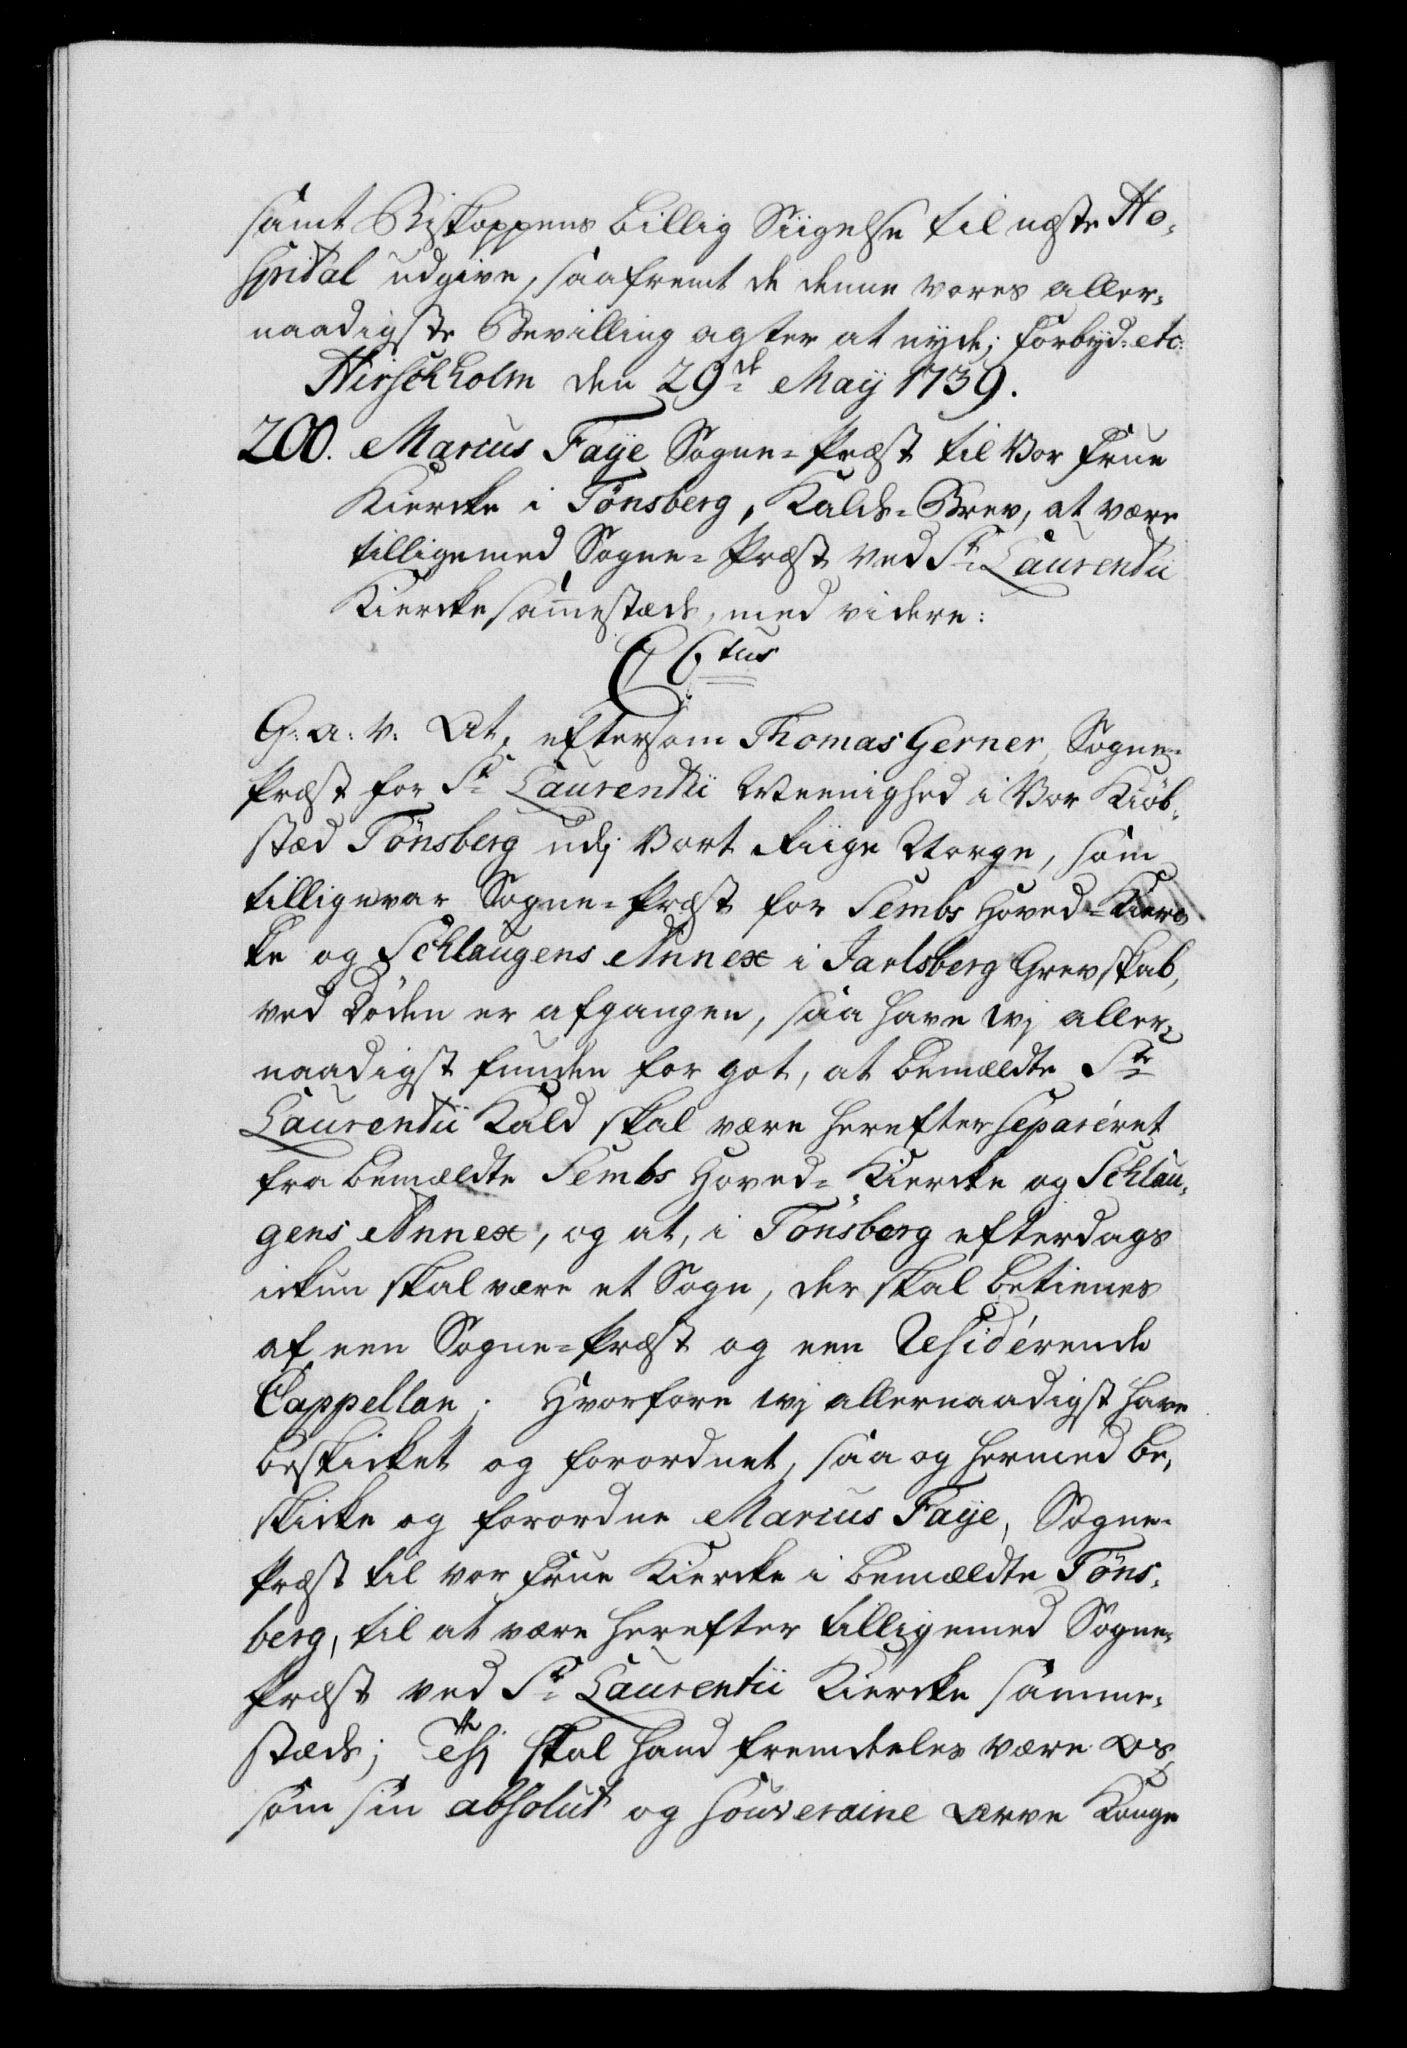 samt Biskoppens billig Sigelse til næste Ho-
spital udgive, saafremt de denne vores aller-
naadigste Bevilling agter at nyde; Forbyd: etc:
Hirschholm den 29de Maÿ 1739.
200. Marcus Faÿe Sogne-Præst til Vor Frue
Kiercke i Tönsberg, Kalds-Brev, at være
tilligemed Sogne-Præst ved St Laurentii
Kiercke samestæds, med videre:
C 6tus
G: a: v: At, eftersom Thomas Gerner, Sogne-
Præst for St Laurentii Meenighed i Vor Kiöb-
stæd Tönsberg udj Vort Riige Norge, som
tillige var Sogne-Præst for Sembs Hoved-Kierc-
ke og Schlaugens Annex i Jarlsberg Grevskab,
ved Döden er afgangen, saa have wj aller-
naadigst funden for got, at bemældte Ste
Laurentii Kald skal være herefter separéret
fra bemældte Sembs Hoved-Kiercke og Schlau-
gens Annex, og at, i Tönsberg efterdags
ickun skal være et Sogn, der skal betienes
af een Sogne-Præst og een Residérende
Cappellan; Hvorfore wj allernaadigst have
beskicket og forordnet, saa og hermed be-
skicke og forordne Marcus Faÿe, Sogne-
Præst til vor Frue Kiercke i bemældte Töns-
berg, til at være herefter tilligemed Sogne-
Præst ved St Laurentii Kiercke samme-
stæds; Thj skal hand fremdeles være Os
som sin absolut og souveraine Arve Konge